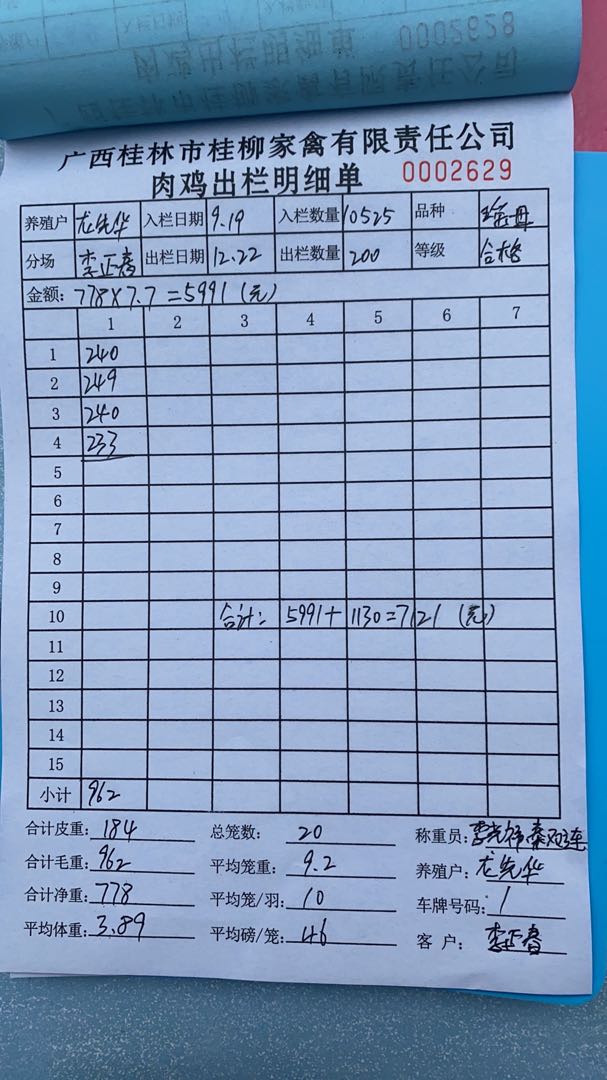 广西桂林市桂柳家禽有限责任公司
肉鸡出栏明细单 0002629
养殖户 龙先华 入栏日期 9.19 入栏数量 10525 品种 母
分场 李正春 出栏日期 12.22 出栏数量 200 等级 合格
金额: 778×7.7=5991(元)
1 2 3 4 5 6 7
1 240
2 249
3 240
4 233
5
6
7
8
9
10 合计: 5991+1130=7121 (元)
11
12
13
14
15
小计 962
合计皮重: 184 总笼数: 20 称重员:
合计毛重: 962 平均笼重: 9.2 养殖户: 龙先华
合计净重: 778 平均笼/羽: 10 车牌号码: 1
平均体重: 3.89 平均磅/笼: 46 客户: 李正春